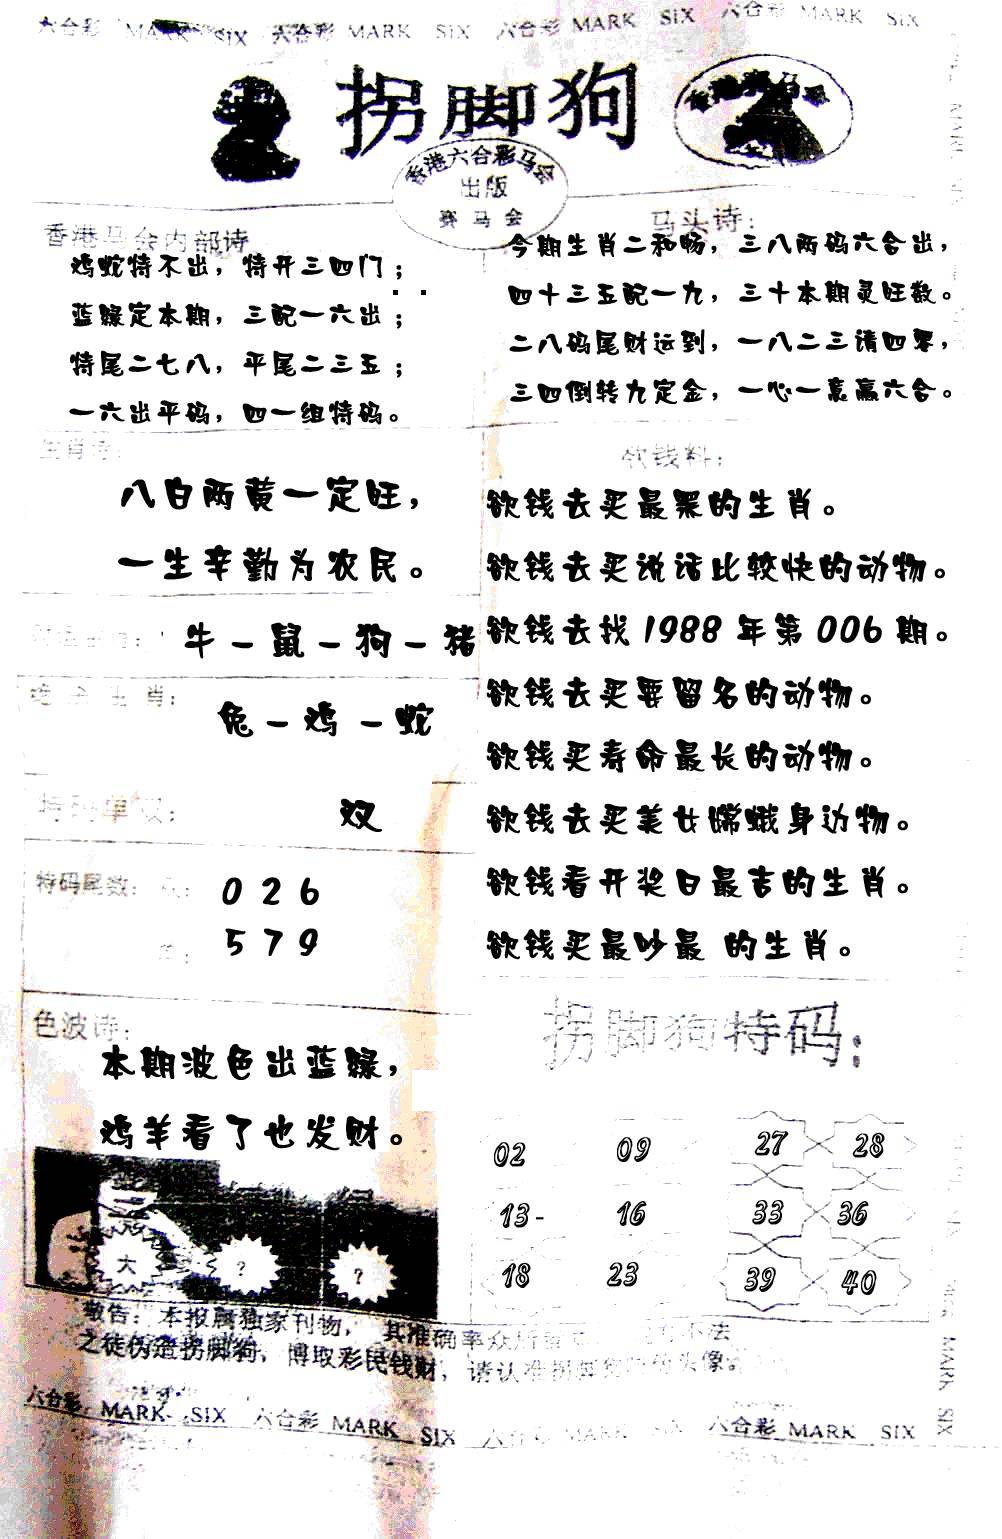 六合彩 MARK SIX 六合彩 MARK SIX 六合彩 MARK SIX 六合彩 MARK SIX
拐脚狗
香港六合彩马会
出版
赛马会
香港马会内部诗
鸡蛇特不出，特开三四门；
蓝绿定本期，三配一六出；
特尾二七八，平尾二三五；
一六出平码，四一组特码。
马头诗：
今期生肖二和畅，三八两码六合出，
四十三五配一九，三十本期灵旺数。
二八码尾财运到，一八二三请四零，
三四倒转九定金，一心一意赢六合。
生肖诗：
八白两黄一定旺，
一生辛勤为农民。
牛－鼠－狗－猪
生肖：
兔－鸡－蛇
特码单双：
双
特码尾数：
0 2 6
5 7 9
色波诗：
本期波色出蓝绿，
鸡羊看了也发财。
大
?
?
欲钱料：
欲钱去买最黑的生肖。
欲钱去买说话比较快的动物。
欲钱去找1988年第006期。
欲钱去买要留名的动物。
欲钱买寿命最长的动物。
欲钱去买美女嫦娥身边物。
欲钱看开奖日最吉的生肖。
欲钱买最吵最 的生肖。
拐脚狗特码：
02 09 27 28
13- 16 33 36
18 23 39 40
敬告：本报属独家刊物，其准确率众所 不法
之徒伪造拐脚狗，博取彩民钱财，请认准拐脚 头像。
六合彩 MARK SIX 六合彩 MARK SIX 六合彩 MARK 六合彩 MARK SIX
MARK SIX